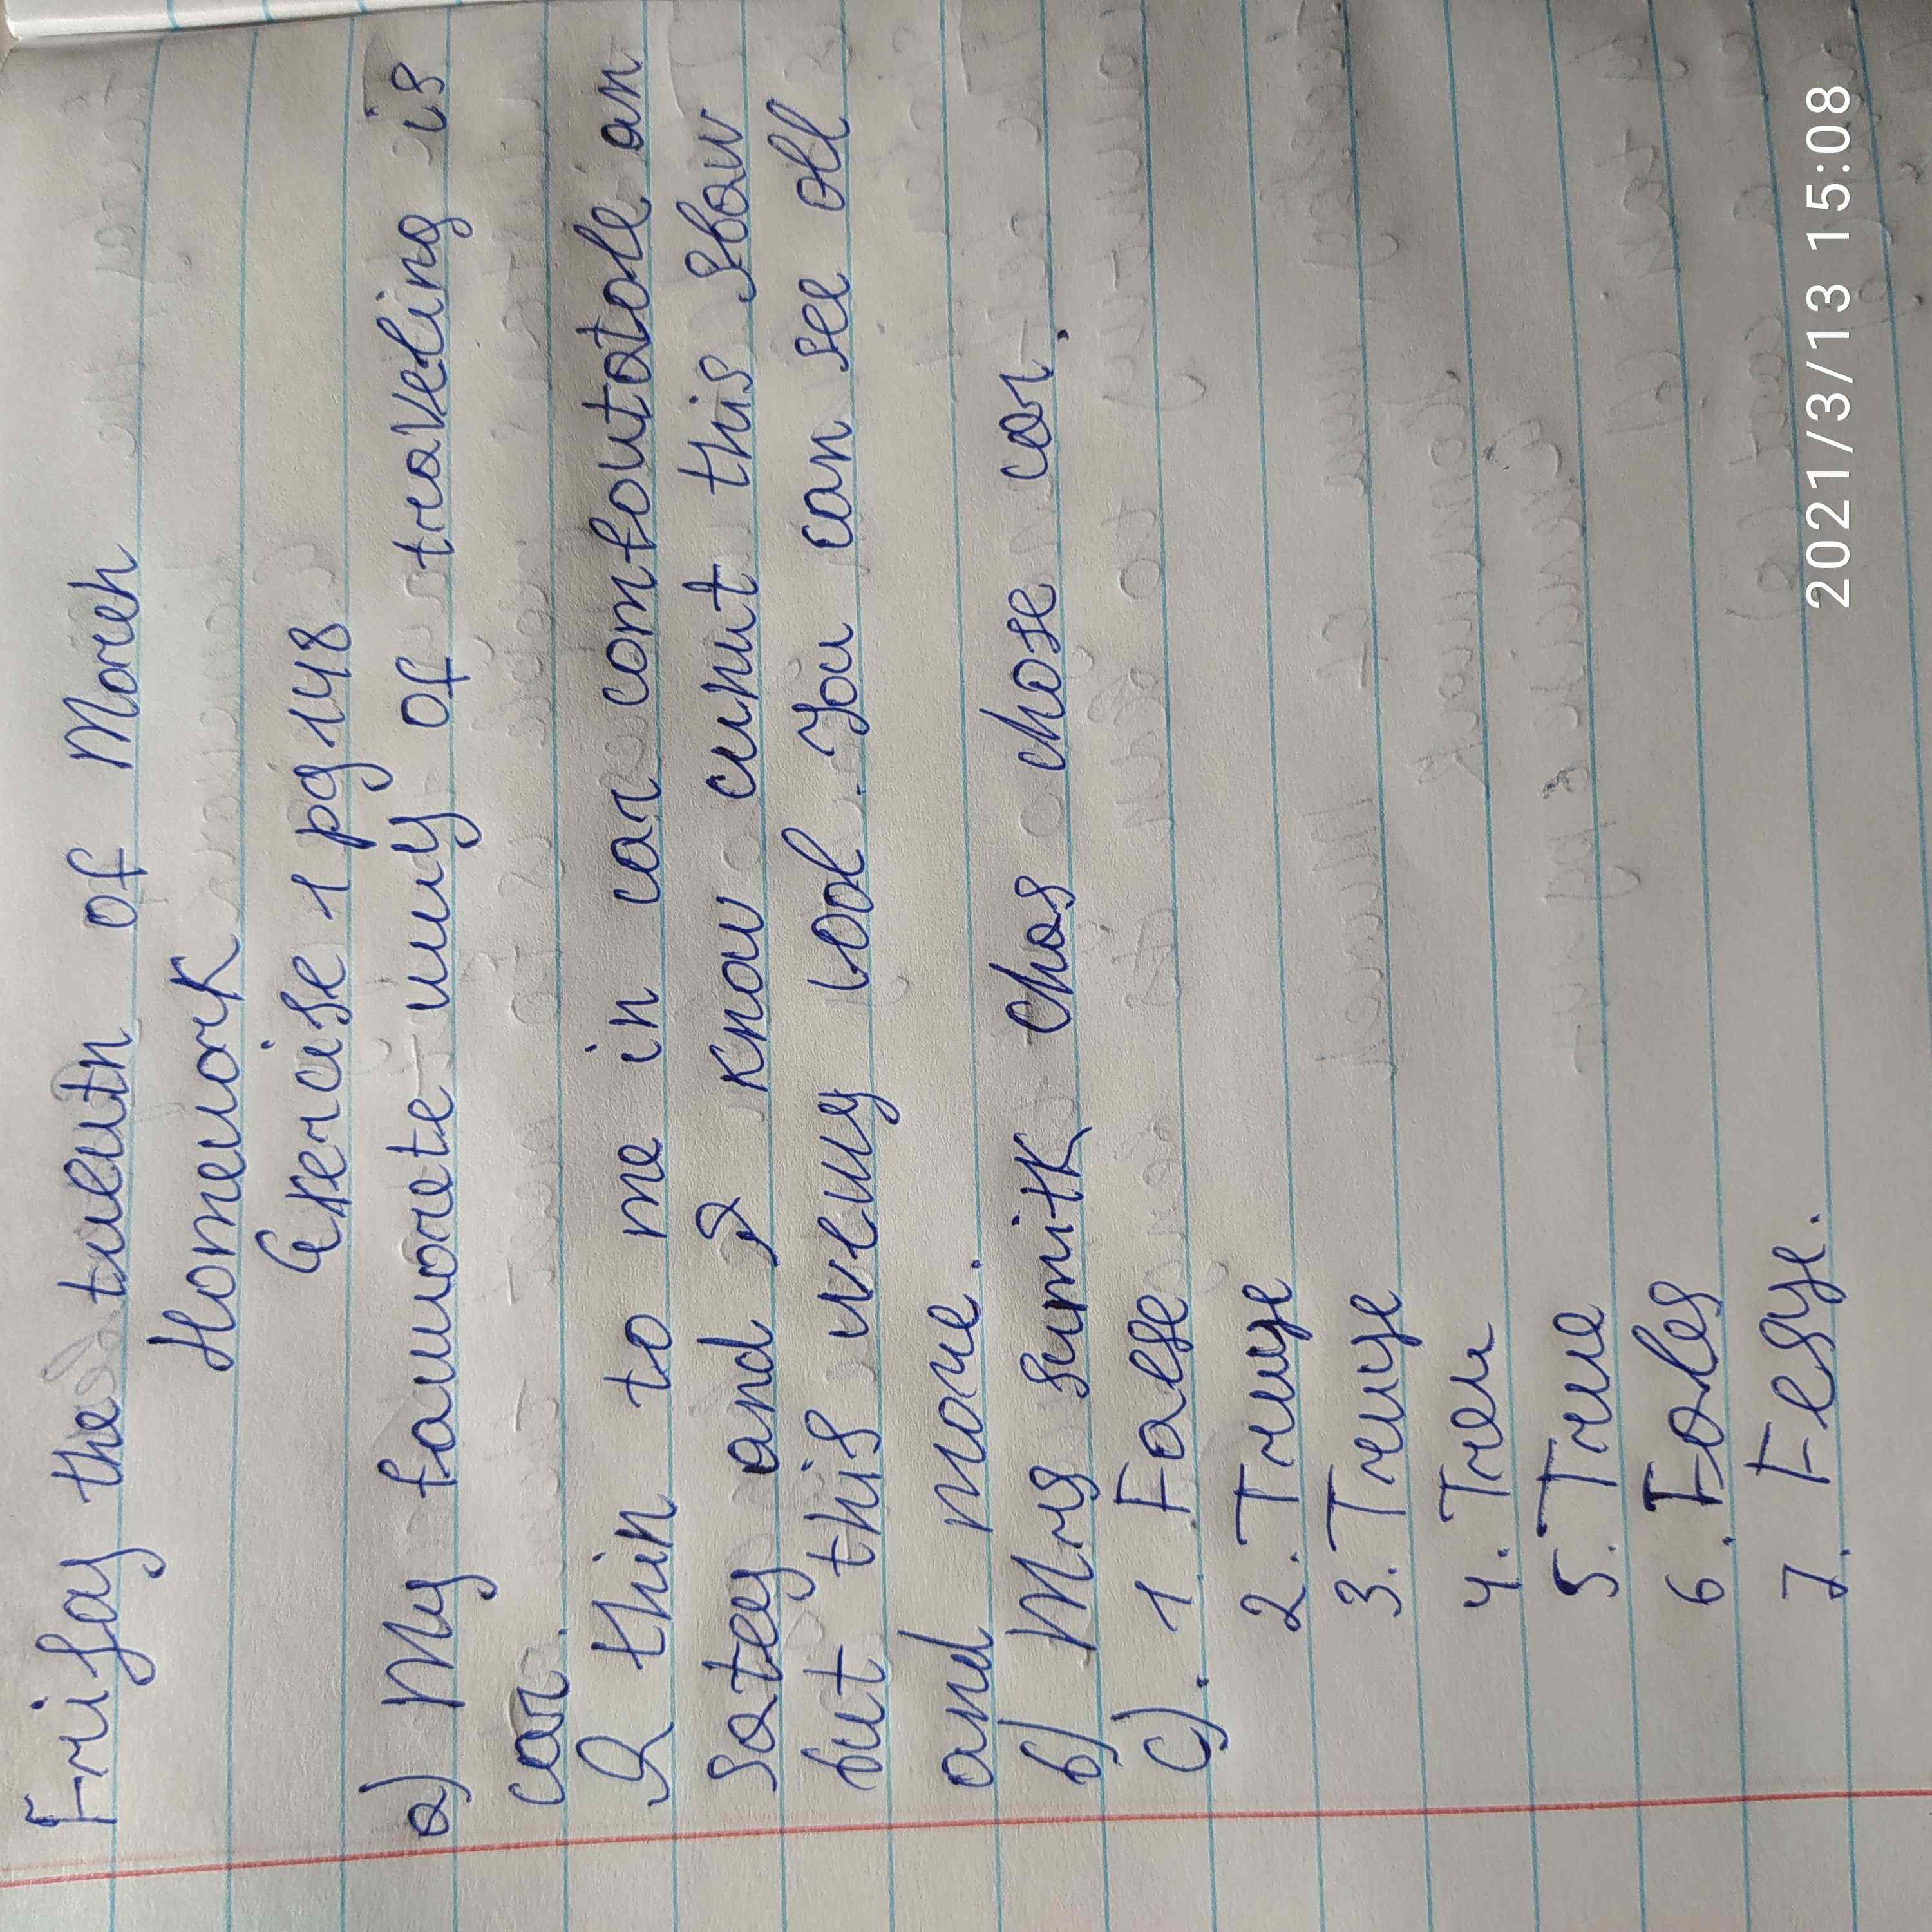 Frifay the twentn of March
Homework
Exercise 1 pg 148
a) My faworete wuy of trakeling is
car.
I thin to me in car comfoutatole an
satey and I know cunut this slow
but this weny cool. You can see oll
and more.
b) Mrs sumitk chos chose car.
c). 1 Falsye
2. Truye
3. Truye
4. Treu
5. True
6. Foles
7. Fesye.
2021/3/13 15:08